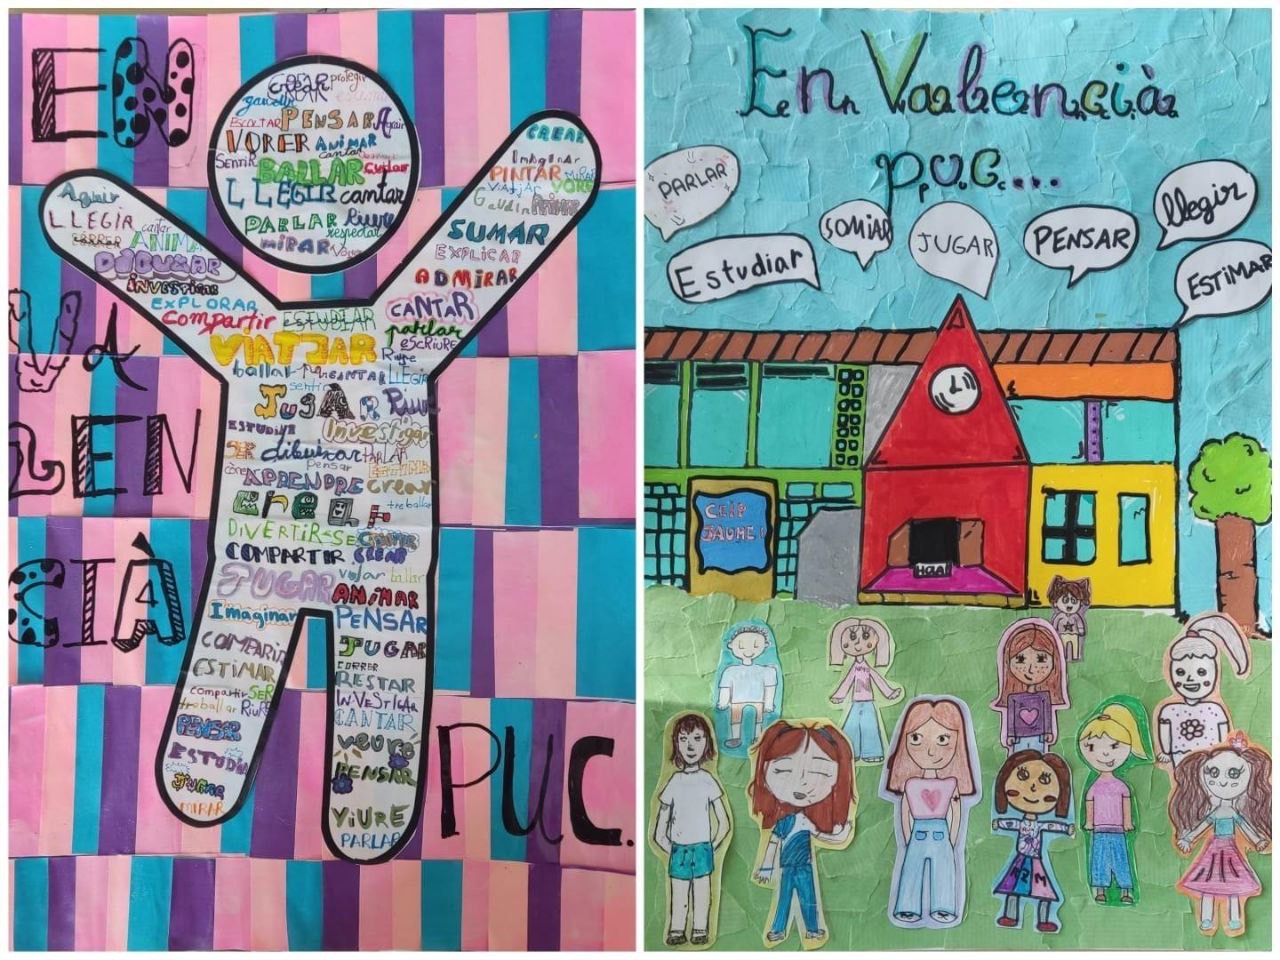 EN
VA
LEN
CIÀ
PUC.
CREAR protegir
gaudir
ESCOLTAR PENSAR Agrair
VORER ANIMAR
cantar
Sentir BALLAR Cuidar
LLEGIR cantar
PARLAR Riure
respectar
MIRAR
Agrair
LLEGIR
CÓRRER cantar
ANIMA
DIBUIXAR
investigar
EXPLORAR
Compartir ESTUDIAR
CREAR
Imaginar
PINTAR MIRAR
VIATJAR VORE
GAUDIR
SUMAR
EXPLICAR
ADMIRAR
CANTAR
parlar
escriure
VIATJAR Riure
ballar CANTAR LLEGIR
sentir
JUGAR Riure
ESTUDIAR Investigar
SER dibuixar PARLAR
pensar ESTIMAR
APRENDRE crear
treballar
CREAR
DIVERTIR-SE CANTAR
COMPARTIR CREAR
JUGAR volar ballar
ANIMAR
Imaginar PENSAR
COMPARIR JUGAR
CORRER
ESTIMAR RESTAR
compartir SER INVESTIGAR
treballar RIURE CANTAR
PENSAR veure
ESTUDIA PENSAR
JUGAR
MIRAR VIURE
PARLAR
En Valencià
puc...
PARLAR
Estudiar
SOMIAR
JUGAR
PENSAR
llegir
ESTIMAR
CEIP
JAUME I
HOLA!